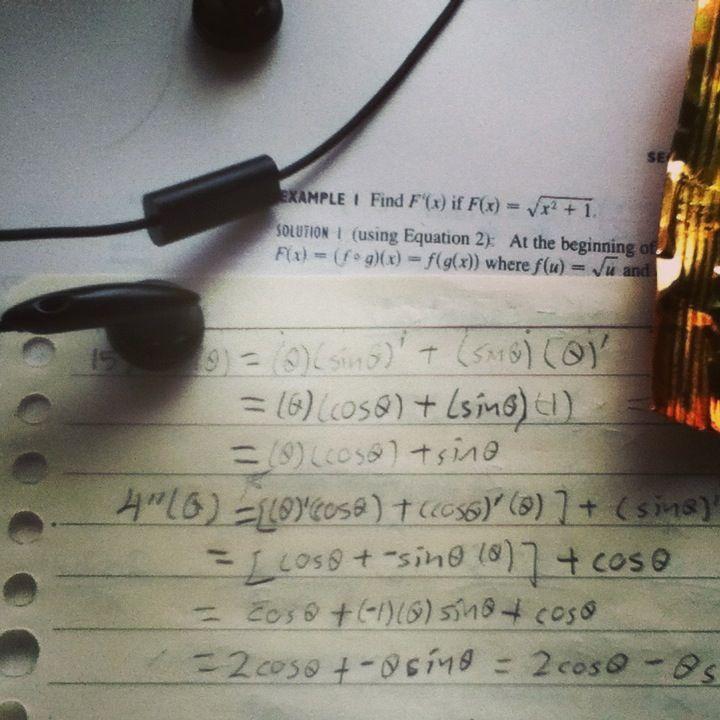 SE
EXAMPLE 1 Find F'(x) if F(x) = √x² + 1.
SOLUTION 1 (using Equation 2): At the beginning of
F(x) = (f ∘ g)(x) = f(g(x)) where f(u) = √u and
15 θ) = (θ)(sinθ)' + (sinθ)(θ)'
= (θ)(cosθ) + (sinθ)(1) =
= (θ)(cosθ) + sinθ
4''(θ) = [(θ)'(cosθ) + (cosθ)'(θ)] + (sinθ)'
= [cosθ + -sinθ(θ)] + cosθ
= cosθ + (-1)(θ)sinθ + cosθ
= 2cosθ + -θsinθ = 2cosθ - θs